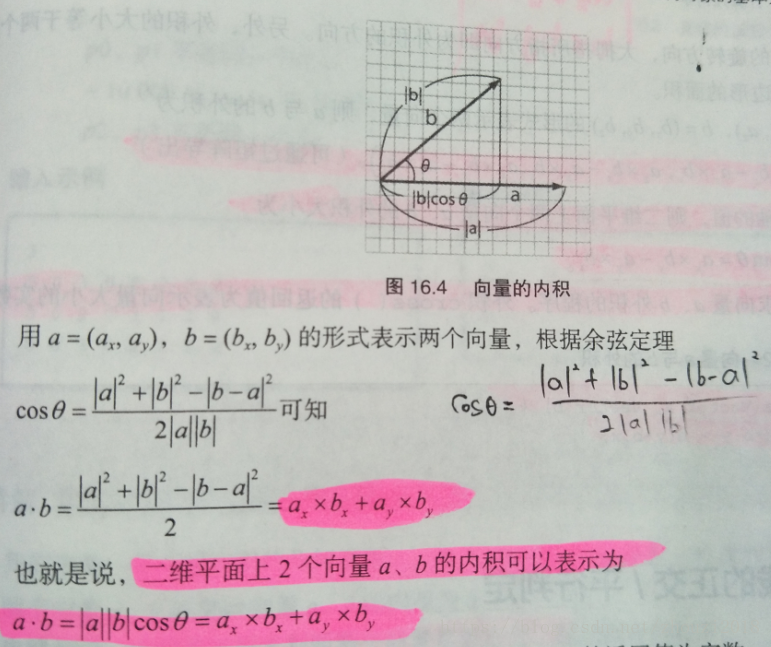 |b|
b
θ
|b|cosθ
a
|a|
图 16.4 向量的内积
用 a = (aₓ, a_y)，b = (bₓ, b_y) 的形式表示两个向量，根据余弦定理
cosθ = (|a|² + |b|² − |b − a|²) / 2|a||b| 可知
cosθ = (|a|² + |b|² − |b-a|²) / 2|a||b|
a·b = (|a|² + |b|² − |b − a|²) / 2 = aₓ × bₓ + a_y × b_y
也就是说，二维平面上 2 个向量 a、b 的内积可以表示为
a·b = |a||b|cosθ = aₓ × bₓ + a_y × b_y